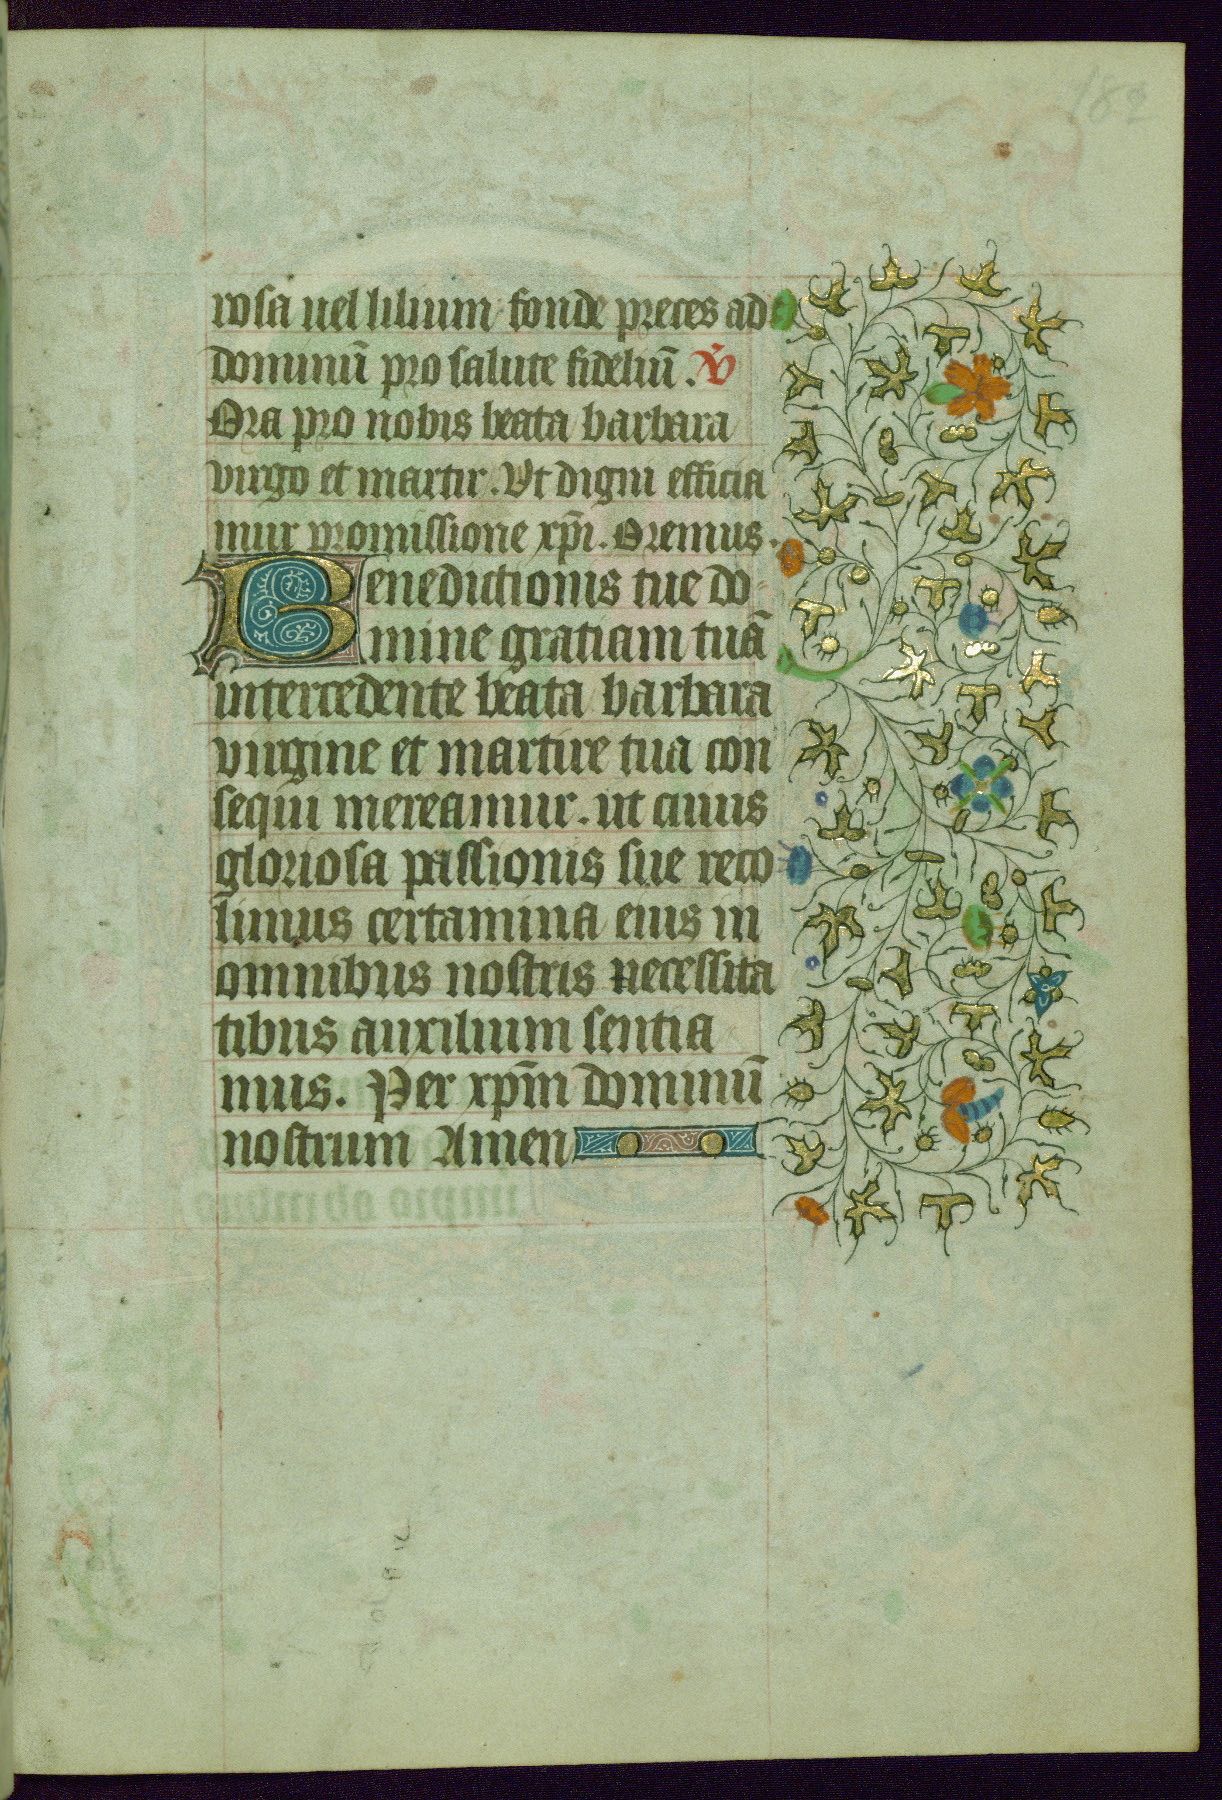 182
rosa uel lilium fonde preces ad
dominū pro salute fideliū. V̄
Ora pro nobis beata barbara
virgo et martir. Vt digni efficia
mur promissione xp̄i. Oremus.
Benedictionis tue do-
mine gratiam tuā
intercedente beata barbara
virgine et martire tua con
sequi mereamur. ut cuius
gloriosa passionis sue reco
limus certamina eius in
omnibus nostris necessita
tibus auxilium sentia
mus. Per xp̄m dominū
nostrum Amen